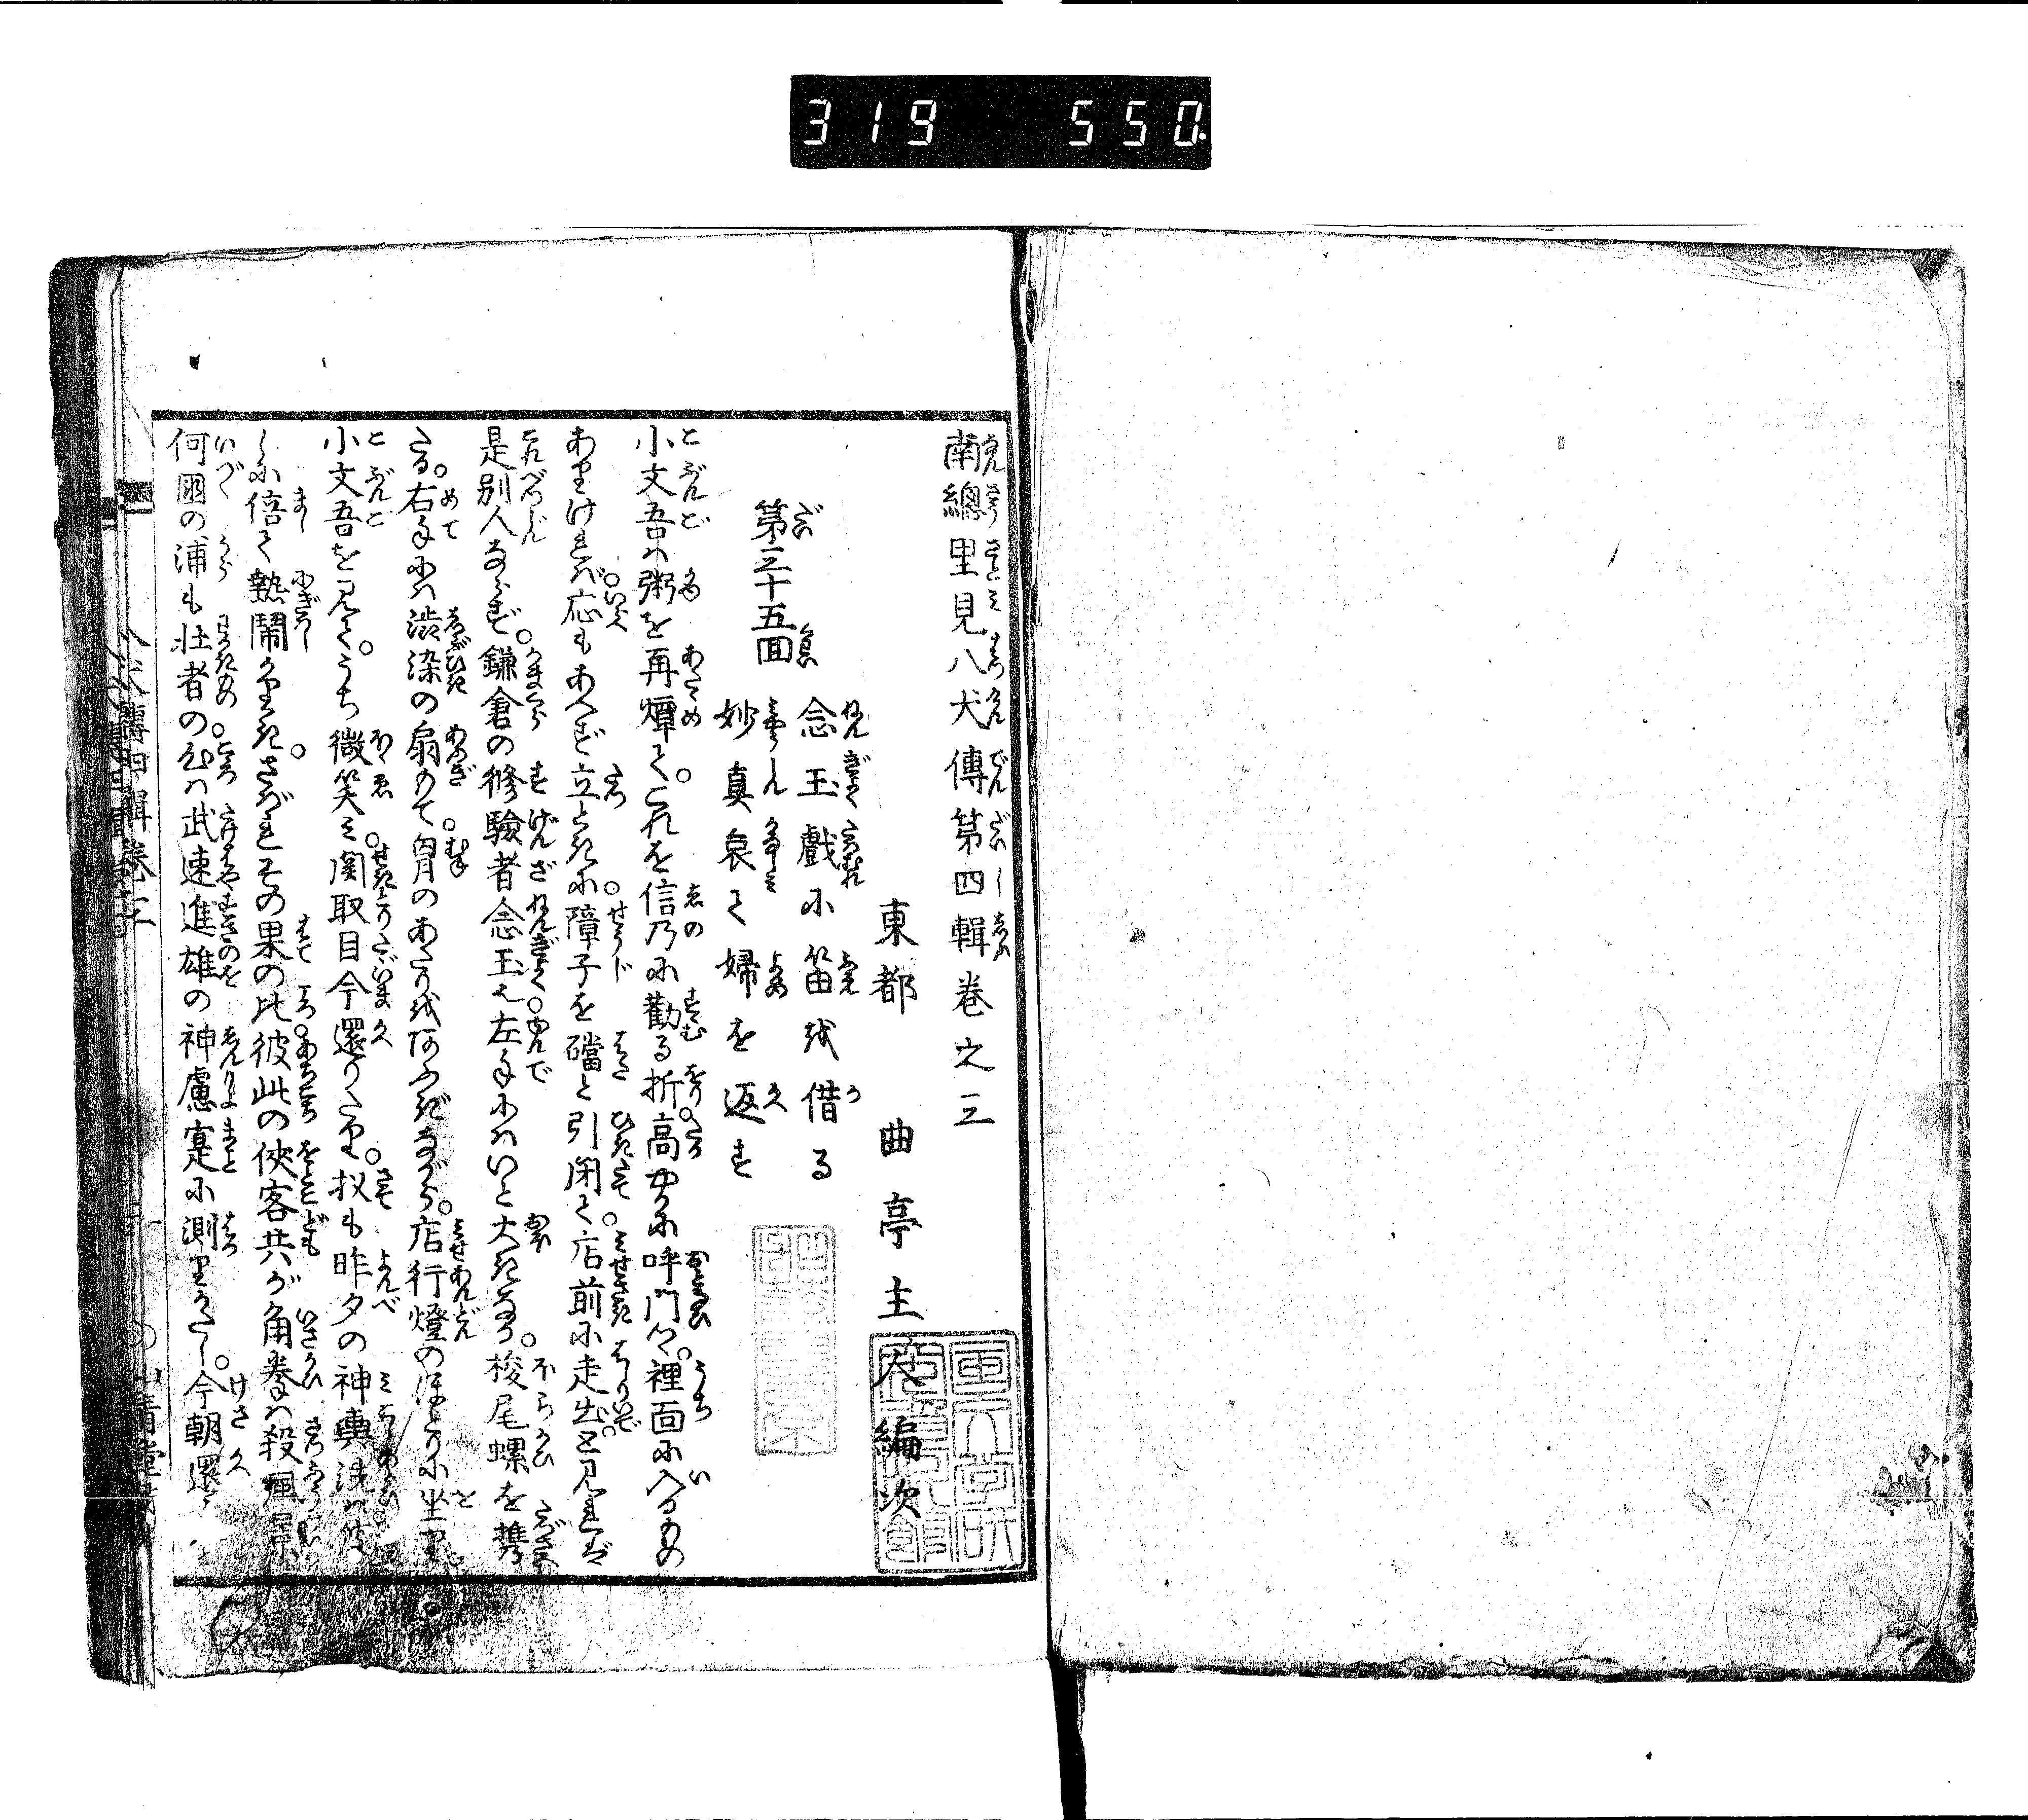 319 550
南總里見八犬傳第四輯卷之三
東都 曲亭主人編次
第三十五回
念玉戲に笛を借る
妙真哀て婦を返す
小文吾は粥を再燂て。これを信乃に勸る折。高やかに呼門つゝ。裡面に入るもの
ありけれど。応もあへず立ときに。障子を礑と引閉て。店前に走出。と見れば
是別人ならず。鎌倉の修驗者念玉也。左手にはいと大きなる。梭尾螺を携
たる。右手には渋染の扇もて。胷のあたりをあふぎながら。店行燈のほとりに坐り
小文吾を見て。うち微笑み。関取目今還りたり。扨も昨夕の神輿洗は
しに倍て熱鬧かりき。さばれその果の比。彼此の俠客共が角拳は殺風景
何國の浦も壮者の心は武速進雄の神慮寔に測りかたし。今朝還